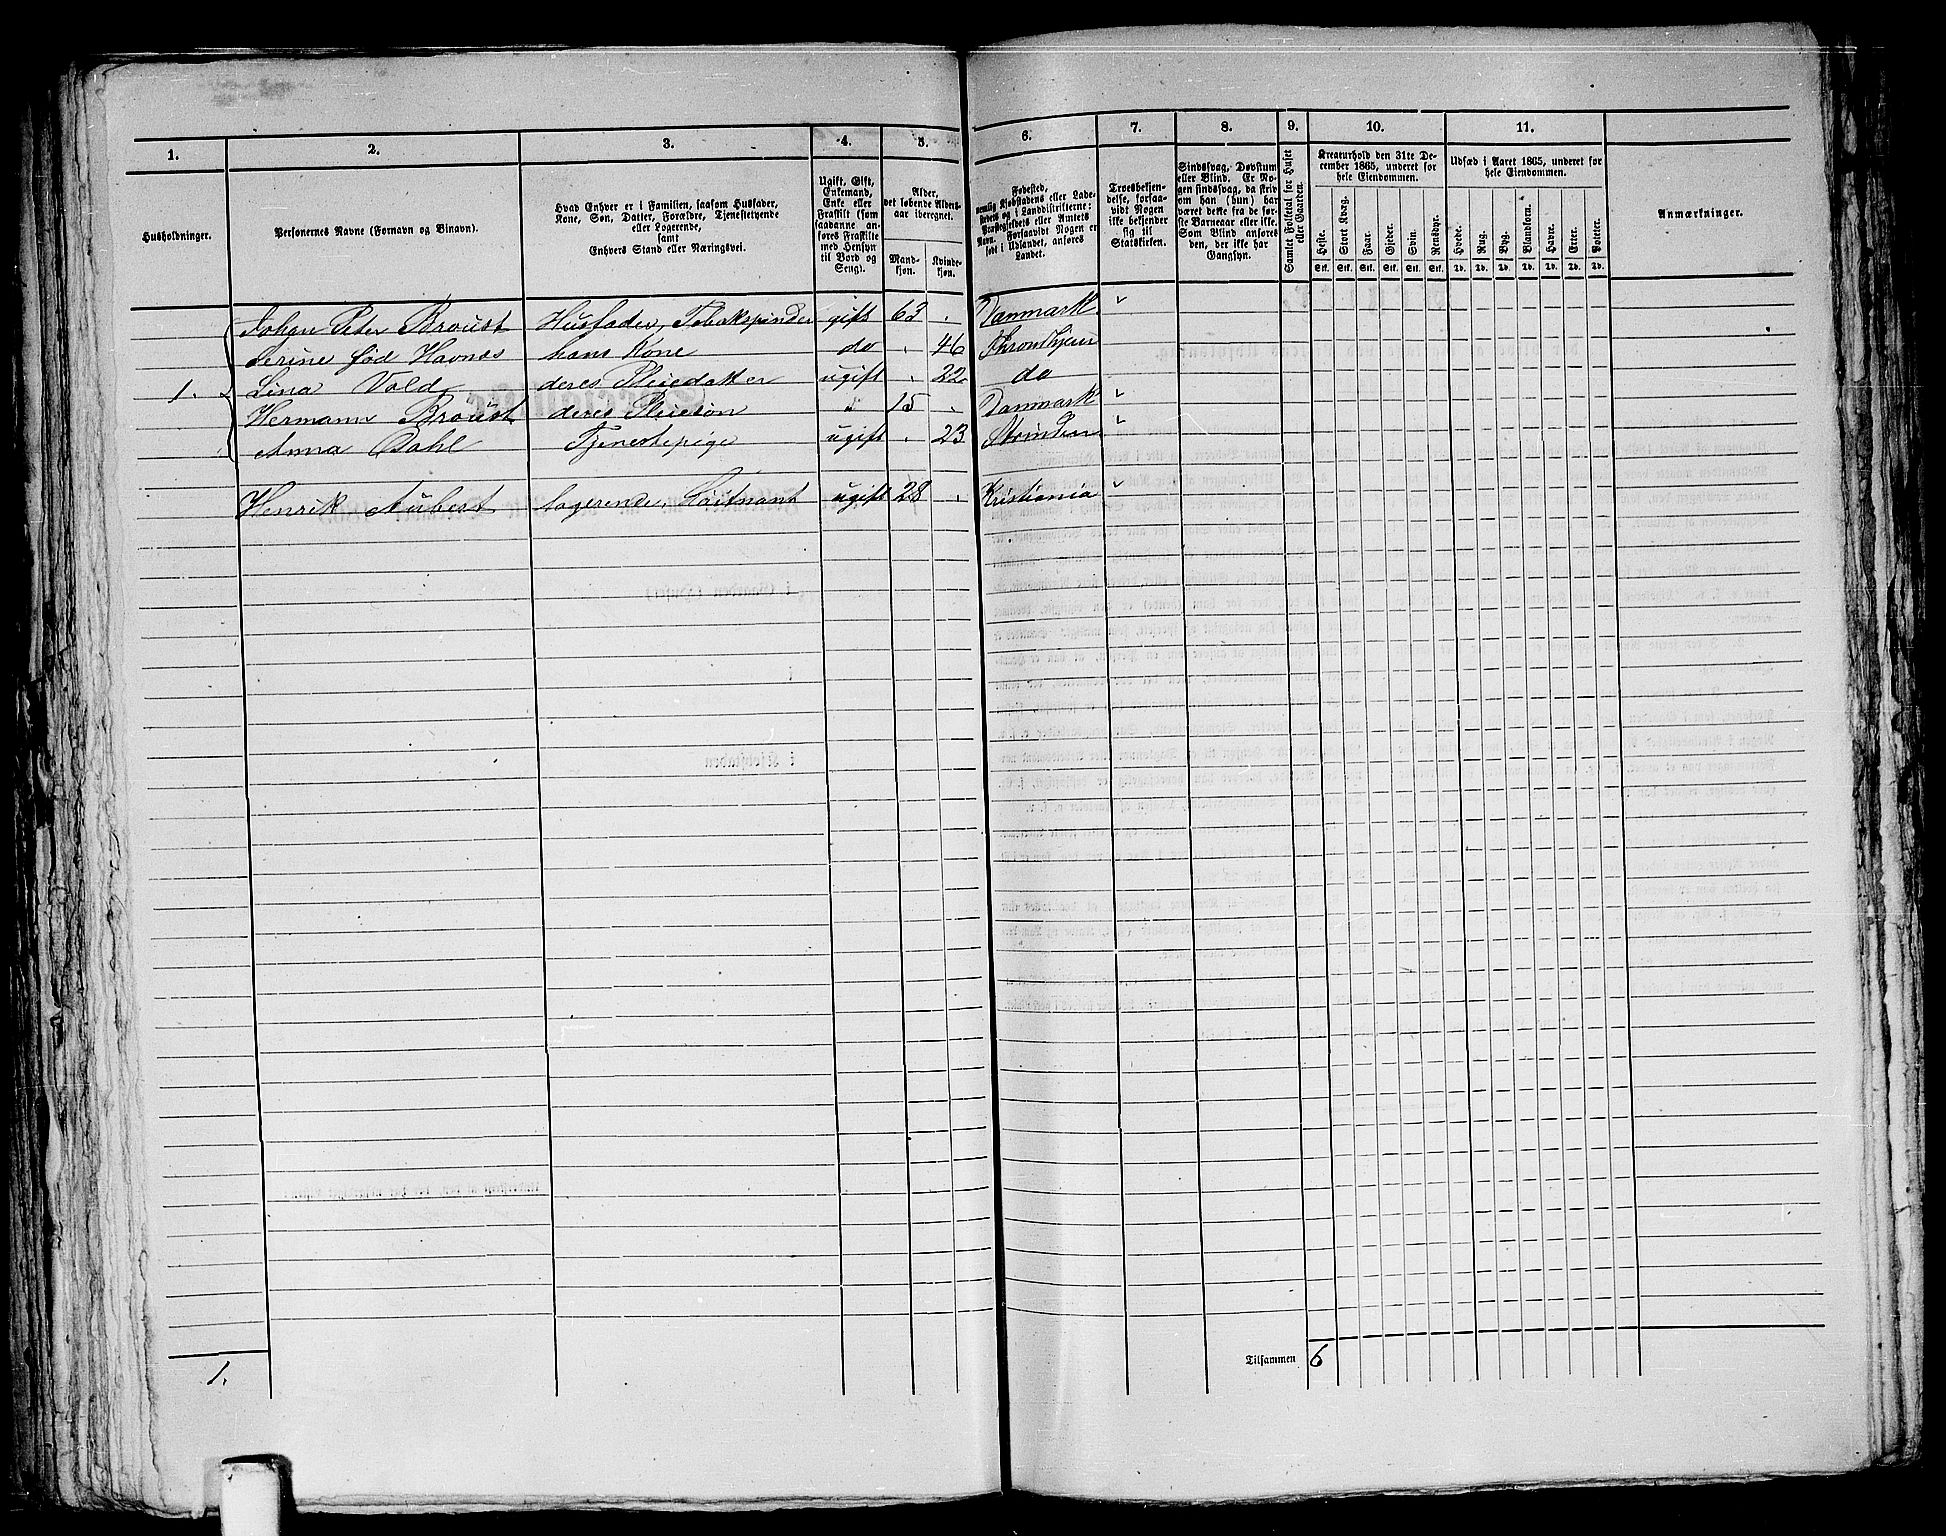 1. 2. 3. 4. 5. 6. 7. 8. 9. 10. 11.
Husholdninger.
Personernes Navne (Fornavn og Binavn).
Hvad Enhver er i Familien, saasom Husfader,
Kone, Søn, Datter, Forældre, Tjenestetyende
eller Logerende,
samt
Enhvers Stand eller Næringsvei.
Ugift, Gift,
Enkemand,
Enke eller
Fraskilt (som
saadanne an-
føres Fraskilte
med Hensyn
til Bord og
Seng).
Alder,
det løbende Alders-
aar iberegnet.
Mand-
kjøn.
Kvinde-
kjøn.
Fødested,
nemlig Kjøbstadens eller Lade-
stedets og i Landdistrikterne:
Præstegjeldets eller Amtets
Navn. Forsaavidt Nogen er
født i Udlandet, anføres
Landet.
Troesbekjen-
delse, forsaa-
vidt Nogen
ikke bekjender
sig til
Statskirken.
Sindssvag, Døvstum
eller Blind. Er No-
gen sindssvag, da skriv
om han (hun) har
været dette fra de før-
ste Barneaar eller ikke.
Som Blind anføres
den, der ikke har
Gangsyn.
Samlet Folketal for Huset
eller Gaarden.
Kreaturhold den 31te De-
cember 1865, underet for
hele Eiendommen.
Heste. Stort Kvæg. Faar. Gjeder. Svin. Rensdyr.
Stk. Stk. Stk. Stk. Stk. Stk.
Udsæd i Aaret 1865, underet for
hele Eiendommen.
Hvede. Rug. Byg. Blandkorn. Havre. Erter. Poteter.
Td. Td. Td. Td. Td. Td. Td.
Anmærkninger.
Johan Peter Broust Husfader, Tobakspinder gift 63 . Danmark
Serine fød Havnås hans Kone do . 46 Thronthjem
1. Lina Vold deres Pleiedatter ugift . 22 do
Hermann Broust deres Pleiesøn 15 . Danmark
Anna Dahl Tjenestepige ugift . 23 Strinden
Henrik Aubest logerende, Løitnant ugift 28 . Kristiania
1. Tilsammen 6